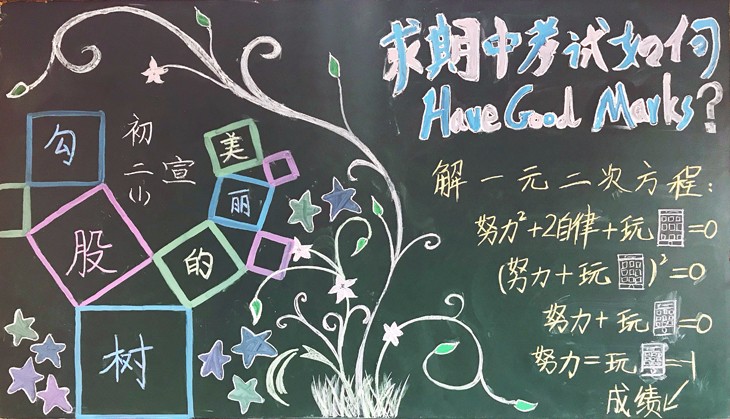 求期中考试如何
Have Good Marks?
初二(1)宣
美
丽
的
勾
股
树
解一元二次方程：
努力²+2自律+玩=0
(努力+玩)²=0
努力+玩=0
努力=玩-1
成绩